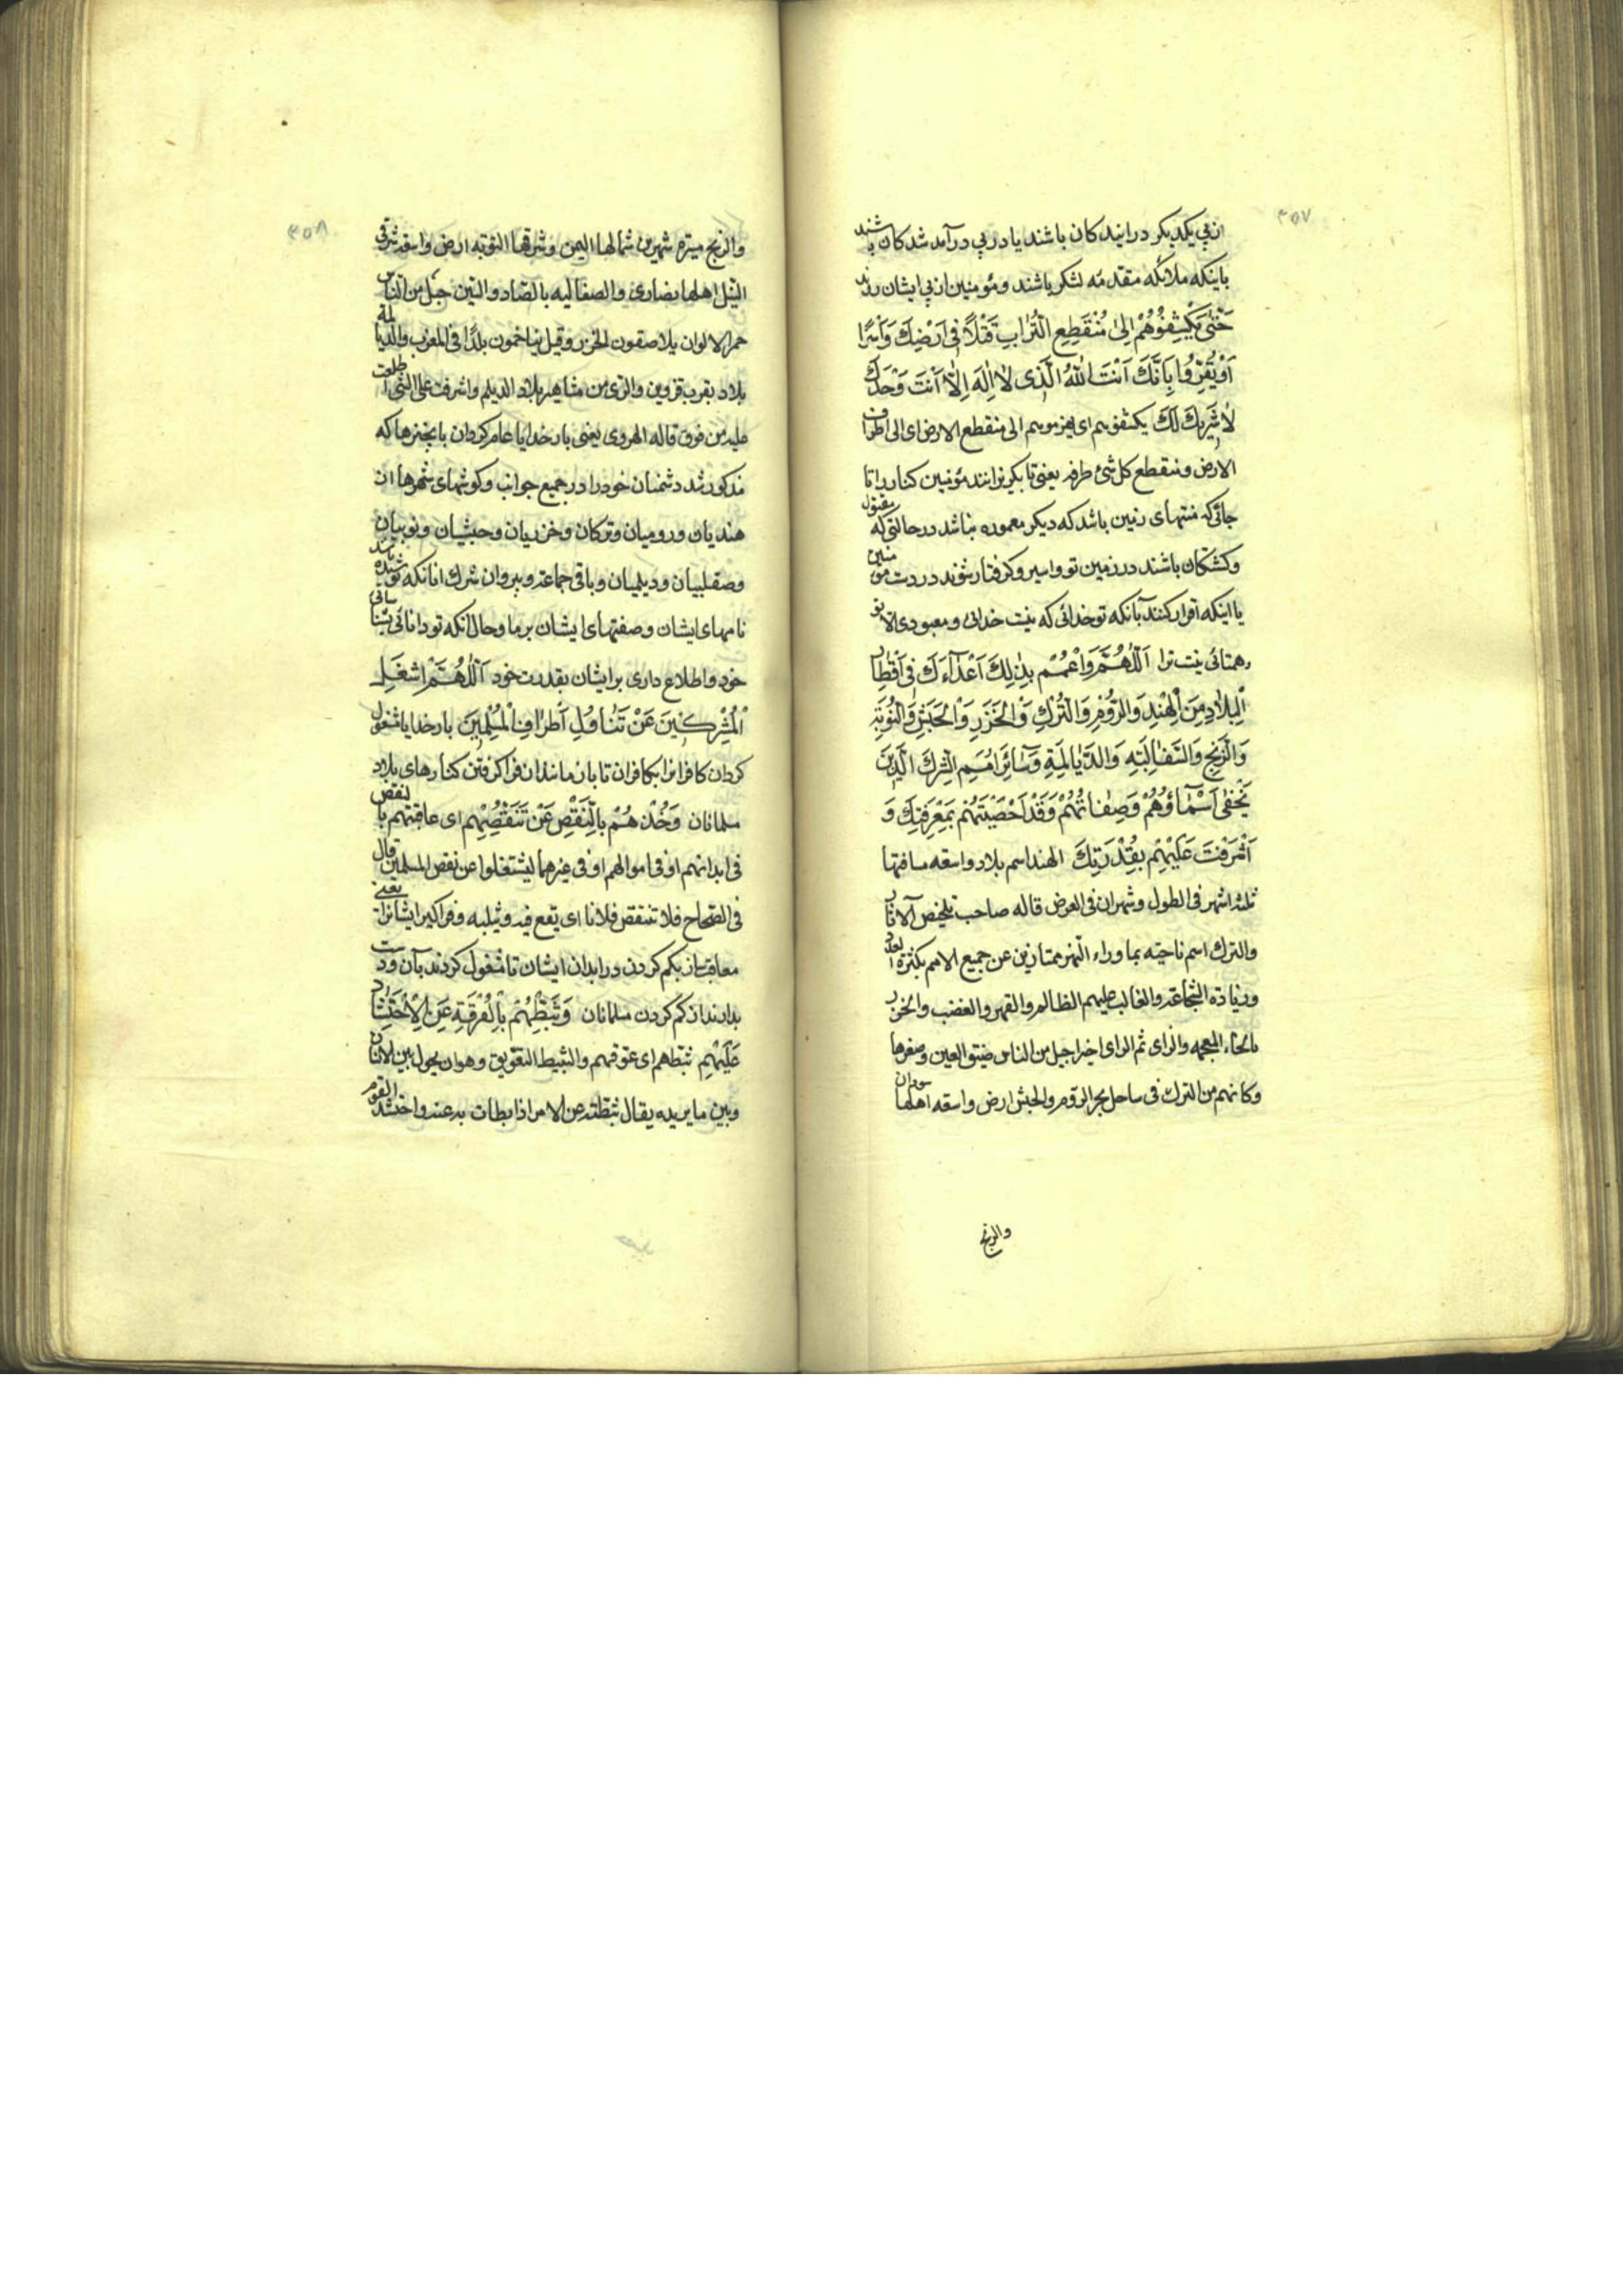 ۳۵۷
از پی یکدیکر در ایند کان باشند یا در پی در آمد شد کان باشند
باینکه ملائکه مقدمه لشکر باشند و مؤمنین از پی ایشان روند
حَتّٰی یَکْشِفُوُهُمْ اِلیٰ مُنْقَطِعِ التُّرٰابِ قَتْلًا فی اَرْضِكَ وَاَسْرًا
اَوْ یُقِرّوُا بِاَنَّكَ اَنْتَ اللهُ الَّذی لٰا اِلٰهَ اِلّٰا اَنْتَ وَحْدَكَ
لٰا شَرِیكَ لَكَ یکشفوهم ای یهزموهم الی منقطع الارض ای الی اطراف
الارض و منقطع کل شئ طرفه یعنی تا بکریزانند مؤمنین کفار را تا
جائی که منتهای زمین باشد که دیکر معموره نباشد در حالتی که مقتول
و کشتکان باشند در زمین تو و اسیر و کرفتار شوند در دست مومنین
یا اینکه اقرار کنند بآنکه تو خدائی که نیست خدائی و معبودی الا تو
و همتائی نیست ترا اَللّٰهُمَّ وَاعْمُمْ بِذٰلِكَ اَعْدٰآءَكَ فی اَقْطٰارِ
الْبِلٰادِ مِنَ الْهِنْدِ وَالرُّومِ وَالتُّرْكِ وَالْخَزَرِ وَالْحَبَشِ وَالنُّوبَةِ
وَالزَّنْجِ وَالسَّقٰالِبَةِ وَالدَّیٰالِمَةِ وَسٰآئِرِ اُمَمِ الشِّرْكِ الَّذینَ
یَخْفیٰ اَسْمٰآؤُهُمْ وَصِفٰاتُهُمْ وَقَدْ اَحْصَیْتَهُمْ بِمَعْرِفَتِكَ وَ
اَشْرَفْتَ عَلَیْهِمْ بِقُدْرَتِكَ الهند اسم بلاد واسعه مسافتها
ثلثه اشهر فی الطول و شهران فی العرض قاله صاحب تلخیص الآثار
والترك اسم ناحیته بما وراء النهر ممتازین عن جمیع الامم بکثرة العدد
وزیادة الشجاعة والغالب علیهم الظالم والقهر والغضب والخزر
بالخاء المعجمه والزای ثم الرای اخیرا جیل من الناس ضیق العین و صغرها
و کانهم من الترك فی ساحل بحر الروم والحبش ارض واسعه اهلها سودان
والزنج
۳۵۸
والزنج مسیرة شهرین شمالها الیمن و شرقها النوبه ارض واسعه شرقی
النیل اهلها نصاری والصقالبه بالصاد والسین جیل من الناس
حمر الالوان یلاصقون الخزر و قیل بلدًا فی المغرب والدیالمة
بلاد بقرب قزوین والری من مشاهیر بلاد الدیلم واشرفت علی الشئ اطلعت
علیه من فوق قاله الهروی یعنی بار خدایا عام کردان بانچیزها که
مذکور شد دشمنان خود را در جمیع جوانب و کوشهای شهرها از
هندیان و رومیان و ترکان و خزریان و حبشیان و نوبیان
و صقلبیان و دیلمیان و باقی جماعة و پیروان شرك انانکه پوشیده باشد
نامهای ایشان و صفتهای ایشان بر ما و حال آنکه تو دانائی بشناسائی
خود و اطلاع داری بر ایشان بقدرت خود اَللّٰهُمَّ اشْغَلِ
الْمُشْرِکینَ عَنْ تَنٰاوُلِ اَطْرٰافِ الْمُسْلِمینَ بار خدایا مشغول
کردان کافرانرا بکافران تا باز مانند از فرا کرفتن کنارهای بلاد
مسلمانان وَخُذْهُمْ بِالنَّقْصِ عَنْ تَنَقُّصِهِمْ ای عاقبتهم بالنقص
فی ابدانهم او فی اموالهم او فی غیرهما لیشتغلوا عن نقص المسلمین قال
فی الصحاح فلا تنتقص فلانا ای یقع فیه و یثلبه و فرا کیر ایشانرا یعنی
معاقب ساز بکم کردن در ابدان ایشان تا مشغول کردند بآن و دست
بدارند از کم کردن مسلمانان وَثَبِّطْهُمْ بِالْفُرْقَةِ عَنِ الْاِحْتِشٰادِ
عَلَیْهِمْ ثبطهم ای عوقهم والتثبیط التعویق و هو ان یحول بین الانسان
و بین ما یریده یقال ثبطته عن الامر اذا بطات به عنه واحتشد القوم